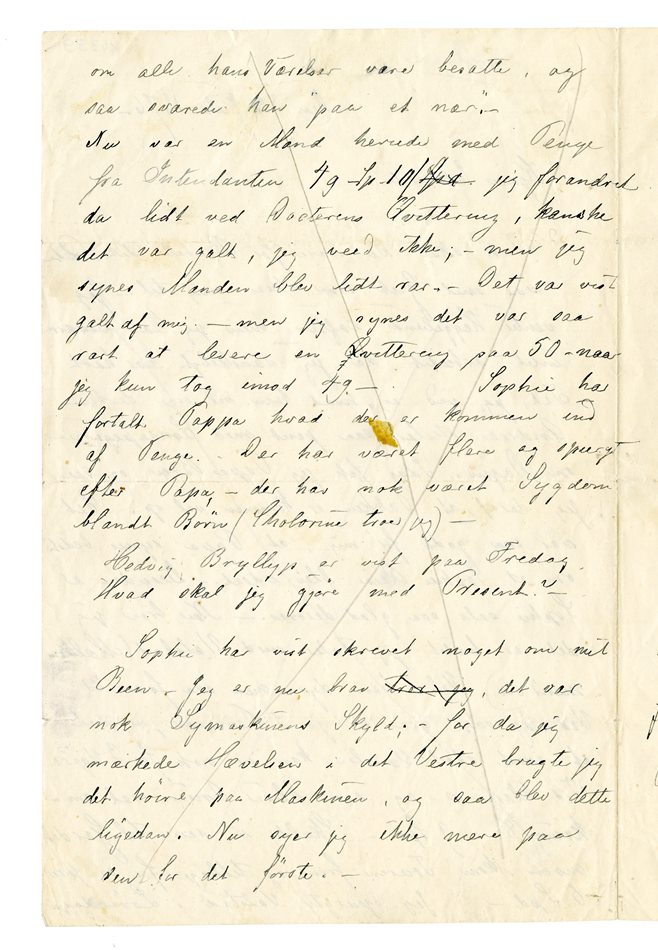 om alle hans Værelser vare besatte, og
saa svarede han "paa et nær".-
Nu var en Mand herude med Penge
fra Intendanten 49 Sp 10/ jeg forandret
da lidt ved Doctorens Qvittering, kanske
det var galt, jeg veed ikke; - men jeg
synes Manden blev lidt rar. - Det var vist
galt af mig. - men jeg synes det var saa
rart at levere en Qvittering paa 50 - naar
jeg kun tog imod 49. - Sophie har
fortalt Pappa hvad der er kommen ind
af Penge. Der har været flere og spurgt
efter Papa, - der har nok været Sygdom
blandt Børn (Cholorine troer jeg) -
Hedvig Bryllyp er vist paa Fredag.
Hvad skal jeg gjøre med Present? -
Sophie har vist skrevet noget om mit
Been. - Jeg er nu brav troer jeg, det var
nok Symaskinens Skyld; - for da jeg
mærkede Hævelsen i det Vestre brugte jeg
det høire paa Maskinen, og saa blev dette
ligedan. Nu syer jeg ikke mere paa
den for det første. -